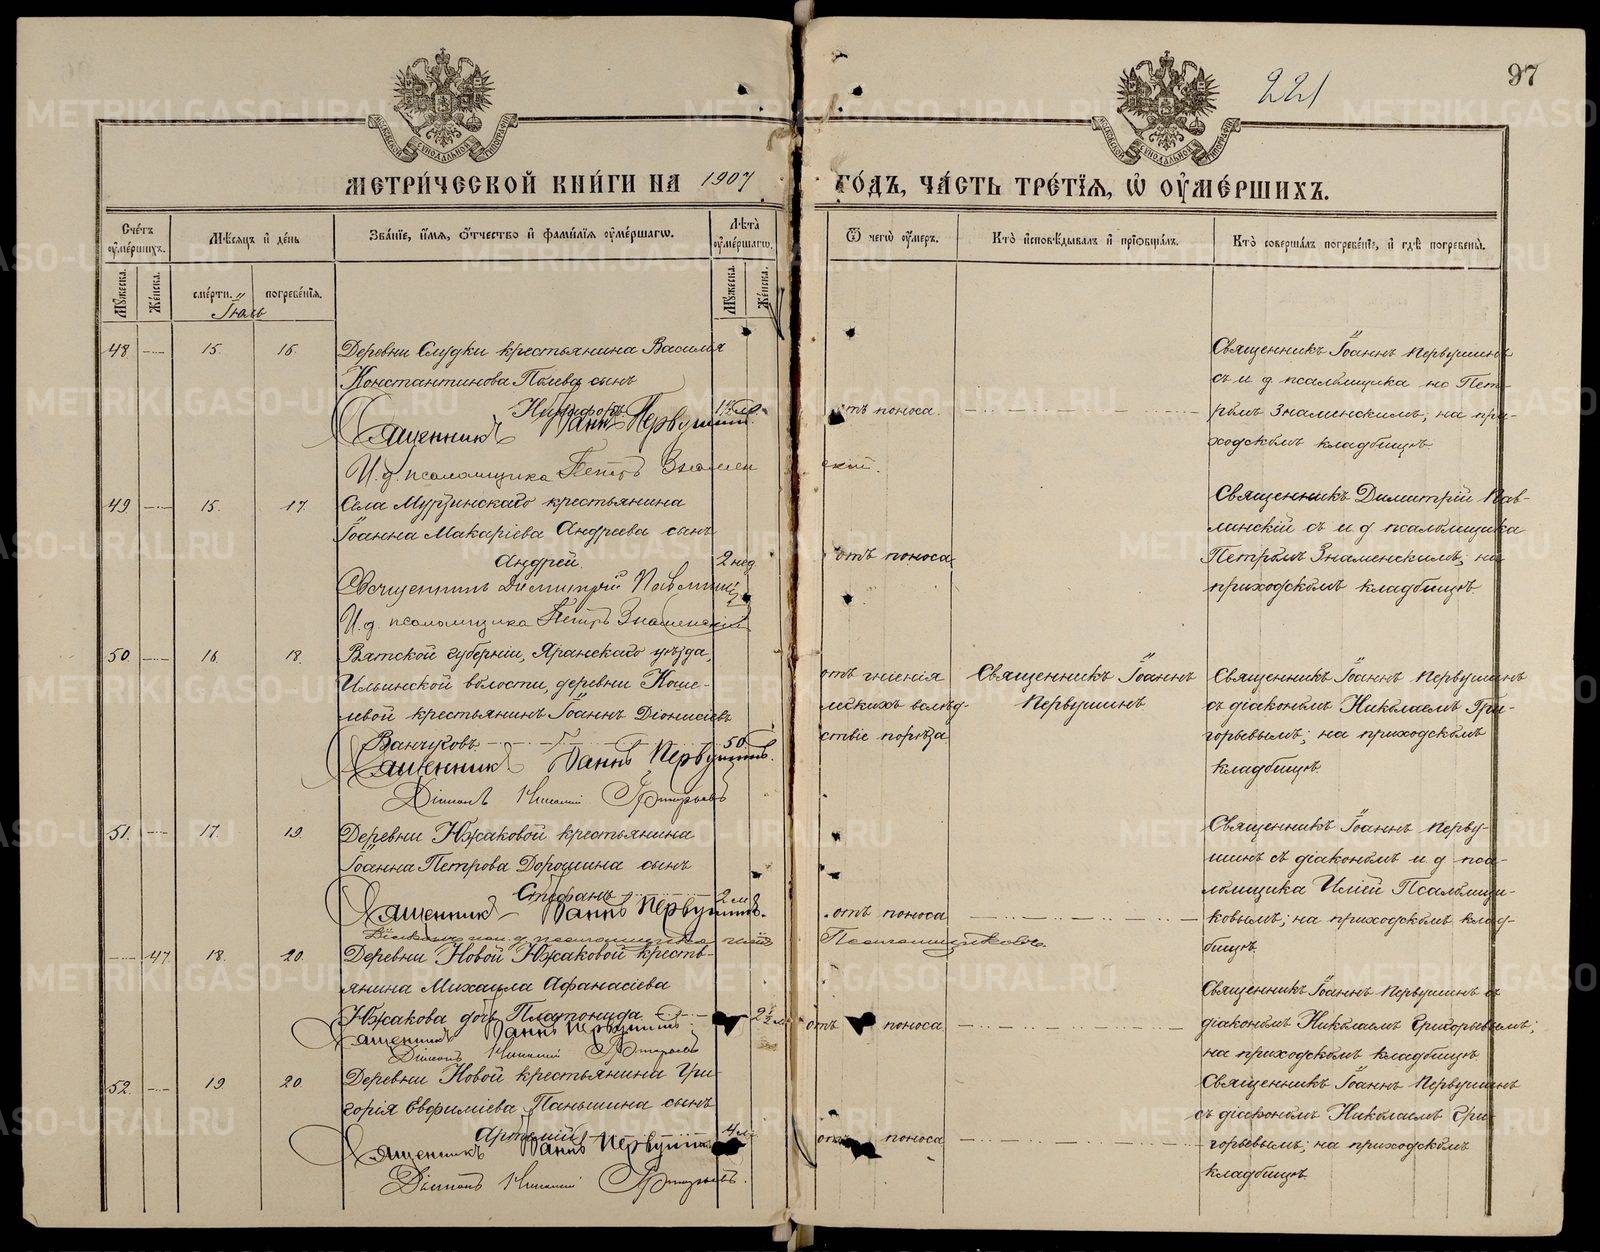 221
97
МЕТРИ́ЧЕСКОЙ КНИ́ГИ НА 1907 ГО́ДЪ, ЧА́СТЬ ТРЕ́ТЇѦ, Ѡ҆ ОУ҆МЕ́РШИХЪ.
Сче́тъ оу҆ме́ршихъ.
Мѣ́сяцъ и҆ де́нь
Зва́нїе, и҆́мя, ѻ҆́тчество и҆ фами́лїя оу҆ме́ршагѡ.
Лѣ́та оу҆ме́ршагѡ.
Ѿ чегѡ̀ оу҆́меръ.
Кто̀ и҆сповѣ́дывалъ и҆ прїѡбща́лъ.
Кто̀ соверша́лъ погребе́нїе, и҆ гдѣ̀ погребены̀.
Мꙋ́жеска. Же́нска. сме́рти. погребе́нїя. Мꙋ́жеска. Же́нска.
Іюль
48 15. 16. Деревни Слудки крестьянина Василія
Константинова сынъ
Никифоръ
отъ поноса.
Священникъ Іоаннъ Первушинъ
И. д. псаломщика Петръ Знаменскій.
Священникъ Іоаннъ Первушинъ
съ и д псаломщика Пет-
ромъ Знаменскимъ; на при-
ходскомъ кладбищѣ.
49 15. 17. Села Мурзинскаго крестьянина
Іоанна Макаріева Андреева сынъ
Андрей. 2 нед. отъ поноса
Священникъ Димитрій
И. д. псаломщика Петръ Знаменскій
Священникъ Димитрій
съ и д псаломщика
Петромъ Знаменскимъ; на
приходскомъ кладбищѣ.
50. 16. 18. Вятской губерніи, Яранскаго уѣзда,
Ильинской волости, деревни Коше-
левой крестьянинъ Іоаннъ Діонисіевъ
Ванчиковъ 50.
Священникъ Іоаннъ Первушинъ.
Діаконъ Николай Григорьевъ
отъ гніенія
вслѣд-
ствіе порѣза
Священникъ Іоаннъ
Первушинъ
Священникъ Іоаннъ Первушинъ
съ діакономъ Николаемъ Гри-
горьевымъ; на приходскомъ
кладбищѣ.
51. 17. 19. Деревни Южаковой крестьянина
Іоанна Петрова Дорошина сынъ
Стефанъ 2 м. отъ поноса
Священникъ Іоаннъ Первушинъ.
Діаконъ на и. д. псаломщика Илія Псаломщиковъ.
Священникъ Іоаннъ Перву-
шинъ съ діакономъ и д пса-
ломщика Иліей Псаломщи-
ковымъ; на приходскомъ клад-
бищѣ.
47 18. 20. Деревни Новой Южаковой кресть-
янина Михаила Афанасіева
Южакова дочь Платонида 2½ м. отъ поноса
Священникъ Іоаннъ Первушинъ
Діаконъ Николай Григорьевъ
Священникъ Іоаннъ Первушинъ съ
діакономъ Николаемъ Григорьевымъ;
на приходскомъ кладбищѣ
52. 19 20. Деревни Новой крестьянина Гри-
горія Евфиміева Паньшина сынъ
Артемій 4 м. отъ поноса
Священникъ Іоаннъ Первушинъ
Діаконъ Николай Григорьевъ.
Священникъ Іоаннъ Первушинъ
съ діакономъ Николаемъ Гри-
горьевымъ; на приходскомъ
кладбищѣ.
METRIKI.GASO-URAL.RU